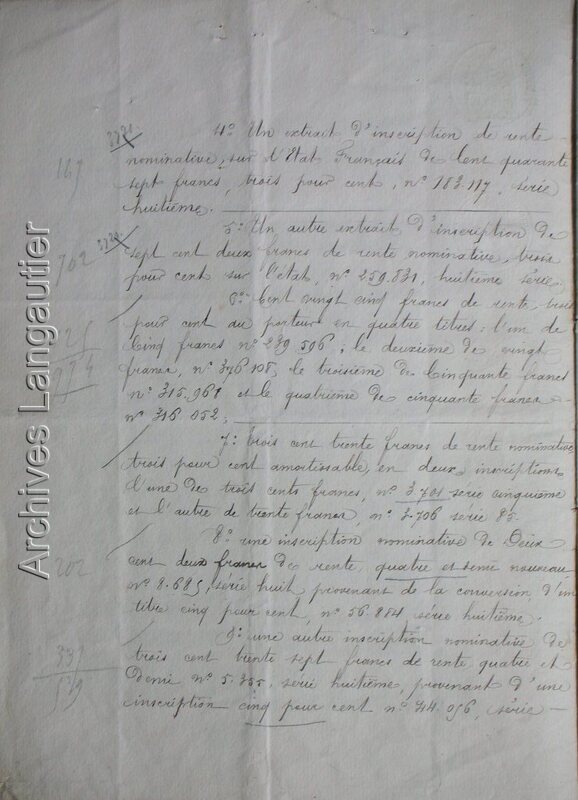 4° Un extrait d'inscription de rente
nominative, sur l'Etat Français de Cent quarante
sept francs, trois pour cent, n° 183.117, série
huitième.
5° Un autre extrait d'inscription de
sept cent deux francs de rente nominative, trois
pour cent sur l'état, n° 259.831, huitième série,
6° Cent vingt cinq francs de rente, trois
pour cent au porteur en quatre titres: l'un de
Cinq francs n° 239 596; le deuxième de vingt
francs, n° 376 108, le troisième de Cinquante francs
n° 315.961 et le quatrième de cinquante francs
n° 316 052;
7° Trois cent trente francs de rente nominative
trois pour cent amortissable, en deux inscriptions
l'une de trois cents francs, n° 3.701 série cinquième
et l'autre de trente francs, n° 3.706 série 85.
8° une inscription nominative de Deux
cent deux francs de rente, quatre et demi nouveau
n° 8.685, série huit, provenant de la conversion d'un
titre cinq pour cent, n° 56.884, série huitième.
9° une autre inscription nominative de
trois cent trente sept francs de rente quatre et
Demi n° 5.355, série huitième, provenant d'une
inscription cinq pour cent n° 44.056, série
702
202
Archives Langautier